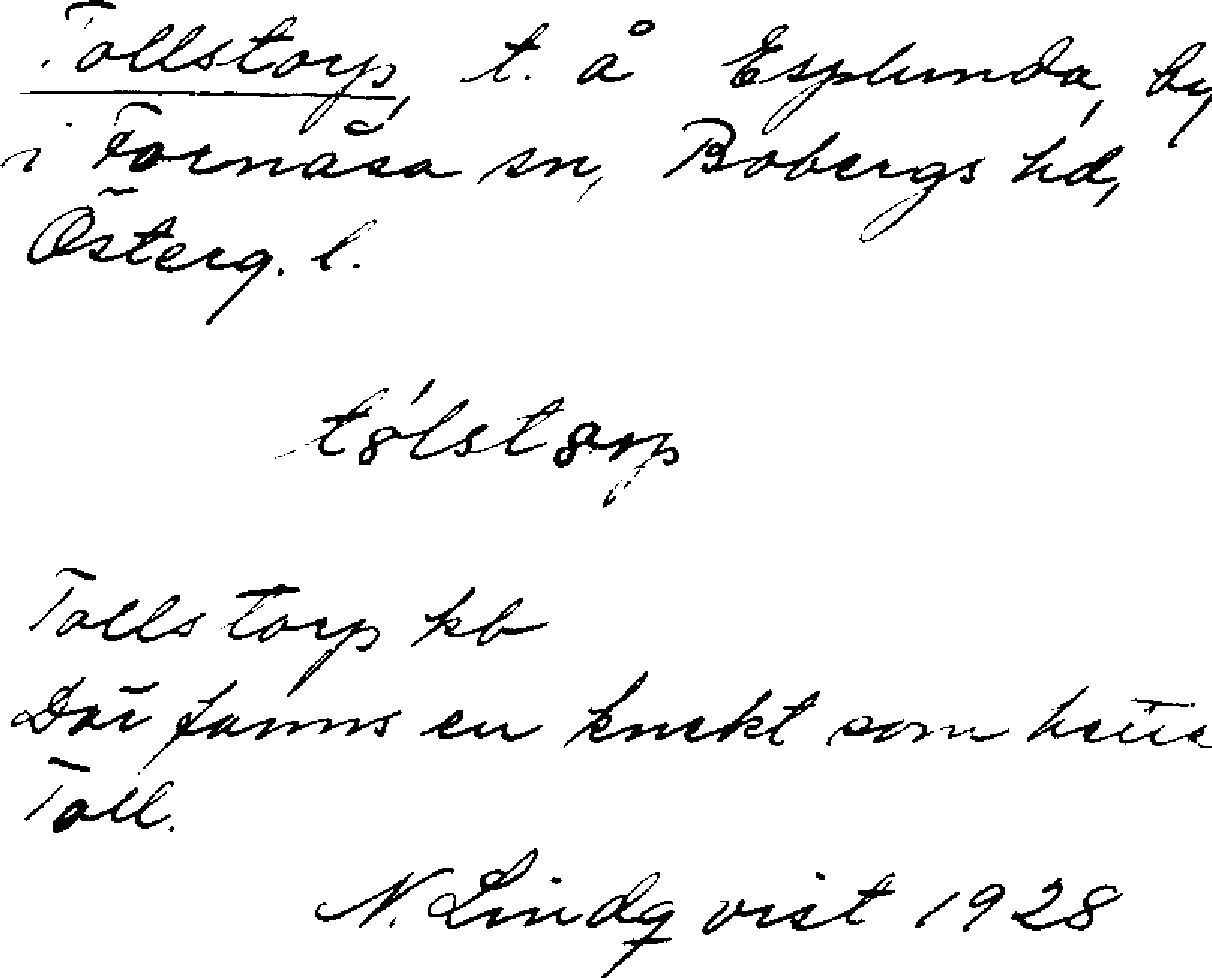 Tollstorp, t. å Esplunda, by
i Fornåsa sn, Bobergs hd,
Österg. l.
Tollstorp kb
Där fanns en knekt som hette
Toll.
N. Lindqvist 1928